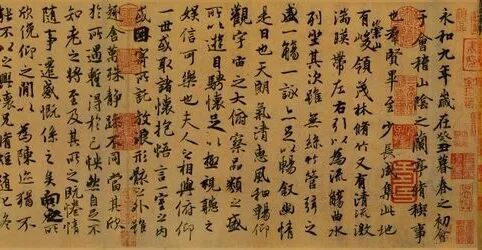 永和九年歲在癸丑暮春之初會
于會稽山陰之蘭亭脩稧事
也羣賢畢至少長咸集此地
有崇山峻領茂林脩竹又有清流激
湍暎帶左右引以為流觴曲水
列坐其次雖無絲竹管弦之
盛一觴一詠亦足以暢敘幽情
是日也天朗氣清惠風和暢仰
觀宇宙之大俯察品類之盛
所以遊目騁懷足以極視聽之
娛信可樂也夫人之相與俯仰
一世或取諸懷抱悟言一室之內
或因寄所託放浪形骸之外雖
趣舍萬殊靜躁不同當其欣
於所遇蹔得於己怏然自足不
知老之將至及其所之既惓情
隨事遷感慨係之矣向之所
欣俛仰之閒以為陳迹猶不
能不以之興懷況脩短隨化終